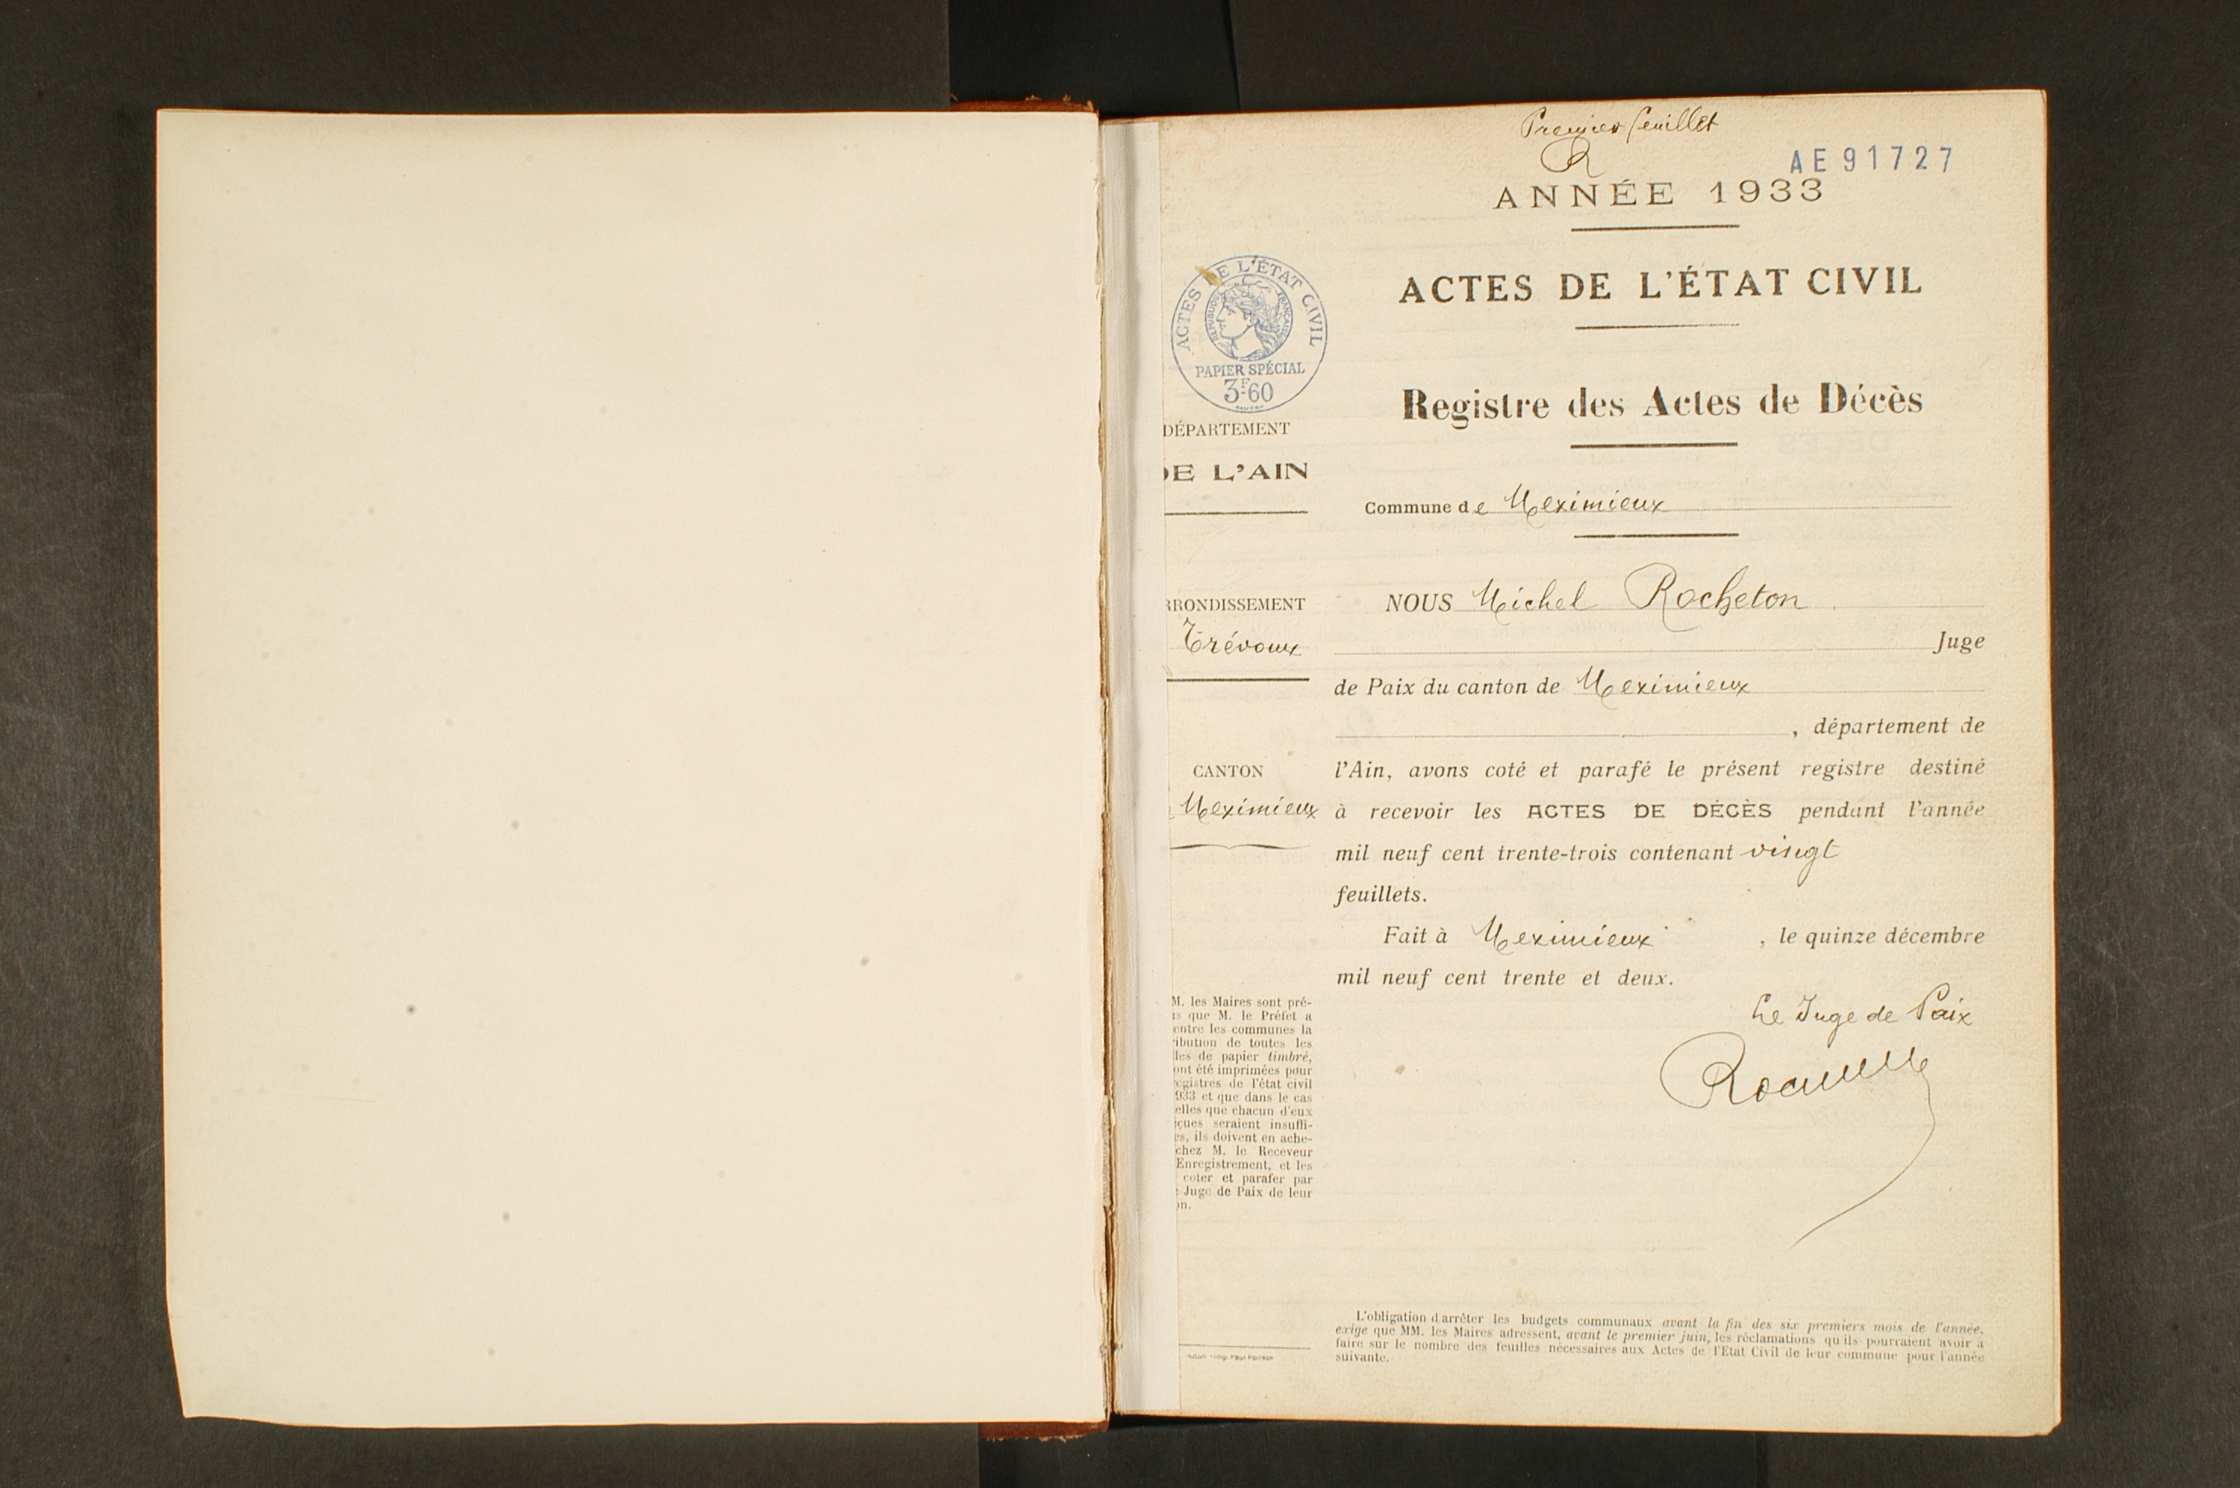 Premier feuillet
R
AE 91727
ANNÉE 1933
ACTES DE L'ÉTAT CIVIL
RÉPUBLIQUE FRANÇAISE
PAPIER SPÉCIAL
3F.60
ACTES DE L'ÉTAT CIVIL
Registre des Actes de Décès
DÉPARTEMENT
DE L'AIN
Commune de Meximieux
RRONDISSEMENT
Trévoux
NOUS Michel Rocheton
Juge
de Paix du canton de Meximieux
, département de
CANTON
Meximieux
l'Ain, avons coté et parafé le présent registre destiné
à recevoir les ACTES DE DÉCÈS pendant l'année
mil neuf cent trente-trois contenant vingt
feuillets.
Fait à Meximieux, le quinze décembre
mil neuf cent trente et deux.
Le Juge de Paix
M. les Maires sont pré-
s que M. le Préfet a
entre les communes la
ribution de toutes les
lles de papier timbré,
ont été imprimées pour
egistres de l'état civil
933 et que dans le cas
elles que chacun d'eux
çues seraient insuffi-
es, ils doivent en ache-
chez M. le Receveur
Enregistrement, et les
coter et parafer par
Juge de Paix de leur
on.
L'obligation d'arrêter les budgets communaux avant la fin des six premiers mois de l'année,
exige que MM. les Maires adressent, avant le premier juin, les réclamations qu'ils pourraient avoir à
faire sur le nombre des feuilles nécessaires aux Actes de l'Etat Civil de leur commune pour l'année
suivante.